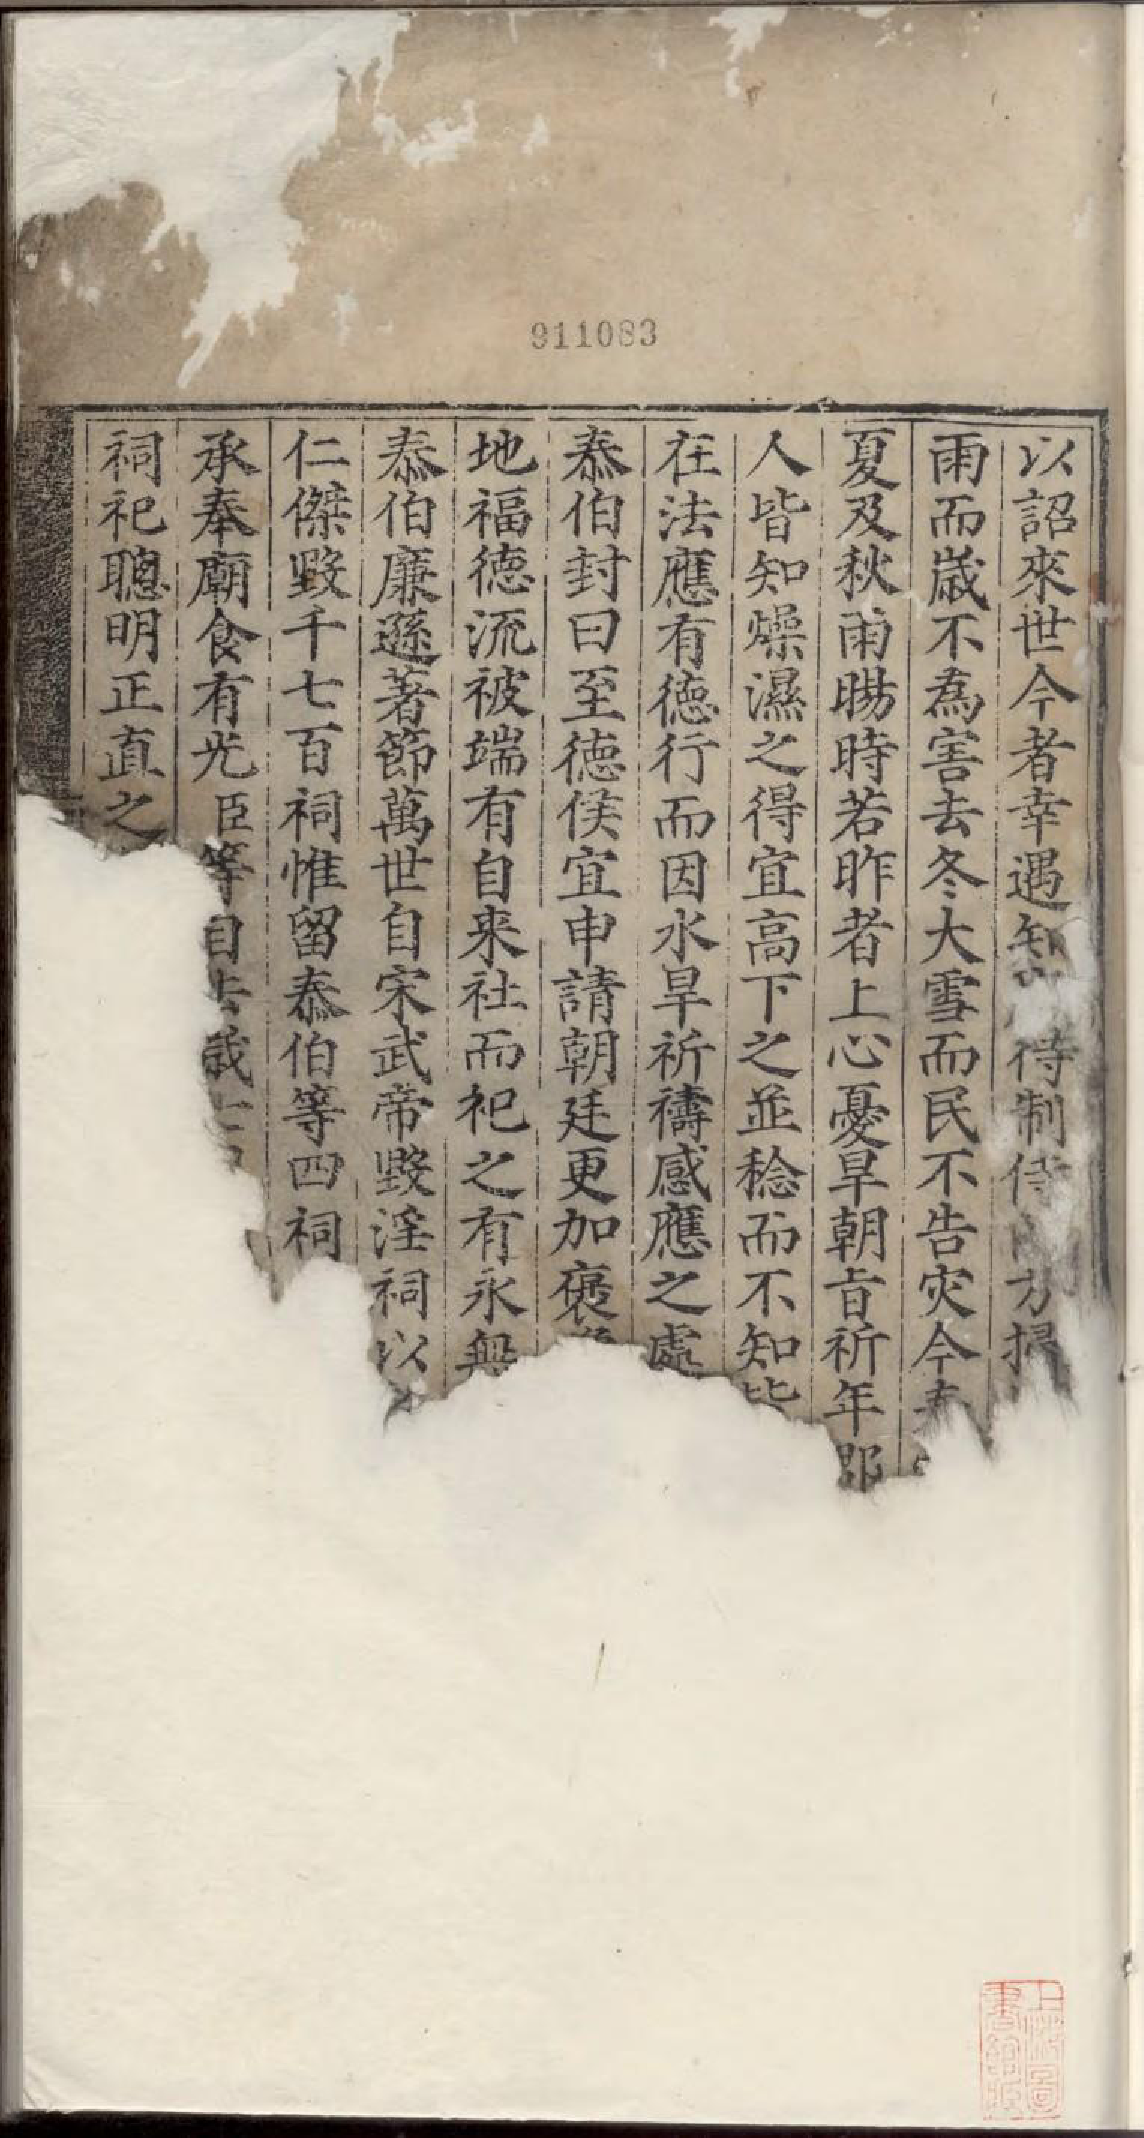 911083
以詔來世今者幸遇知待制侍方掃
雨而歳不為害去冬大雪而民不告灾今春
夏及秋雨暘時若昨者上心憂旱朝㫖祈年郡
人皆知燥濕之得宜高下之並稔而不知
在法應有徳行而因水旱祈禱感應之處
泰伯封曰至徳侯宜申請朝廷更加褒
地福徳流被端有自来社而祀之有永無
泰伯廉遜著節萬世自宋武帝毀淫祠以
仁傑毀千七百祠惟留泰伯等四祠
承奉廟食有光臣等自去歳
祠祀聰明正直之
上海圖書館藏